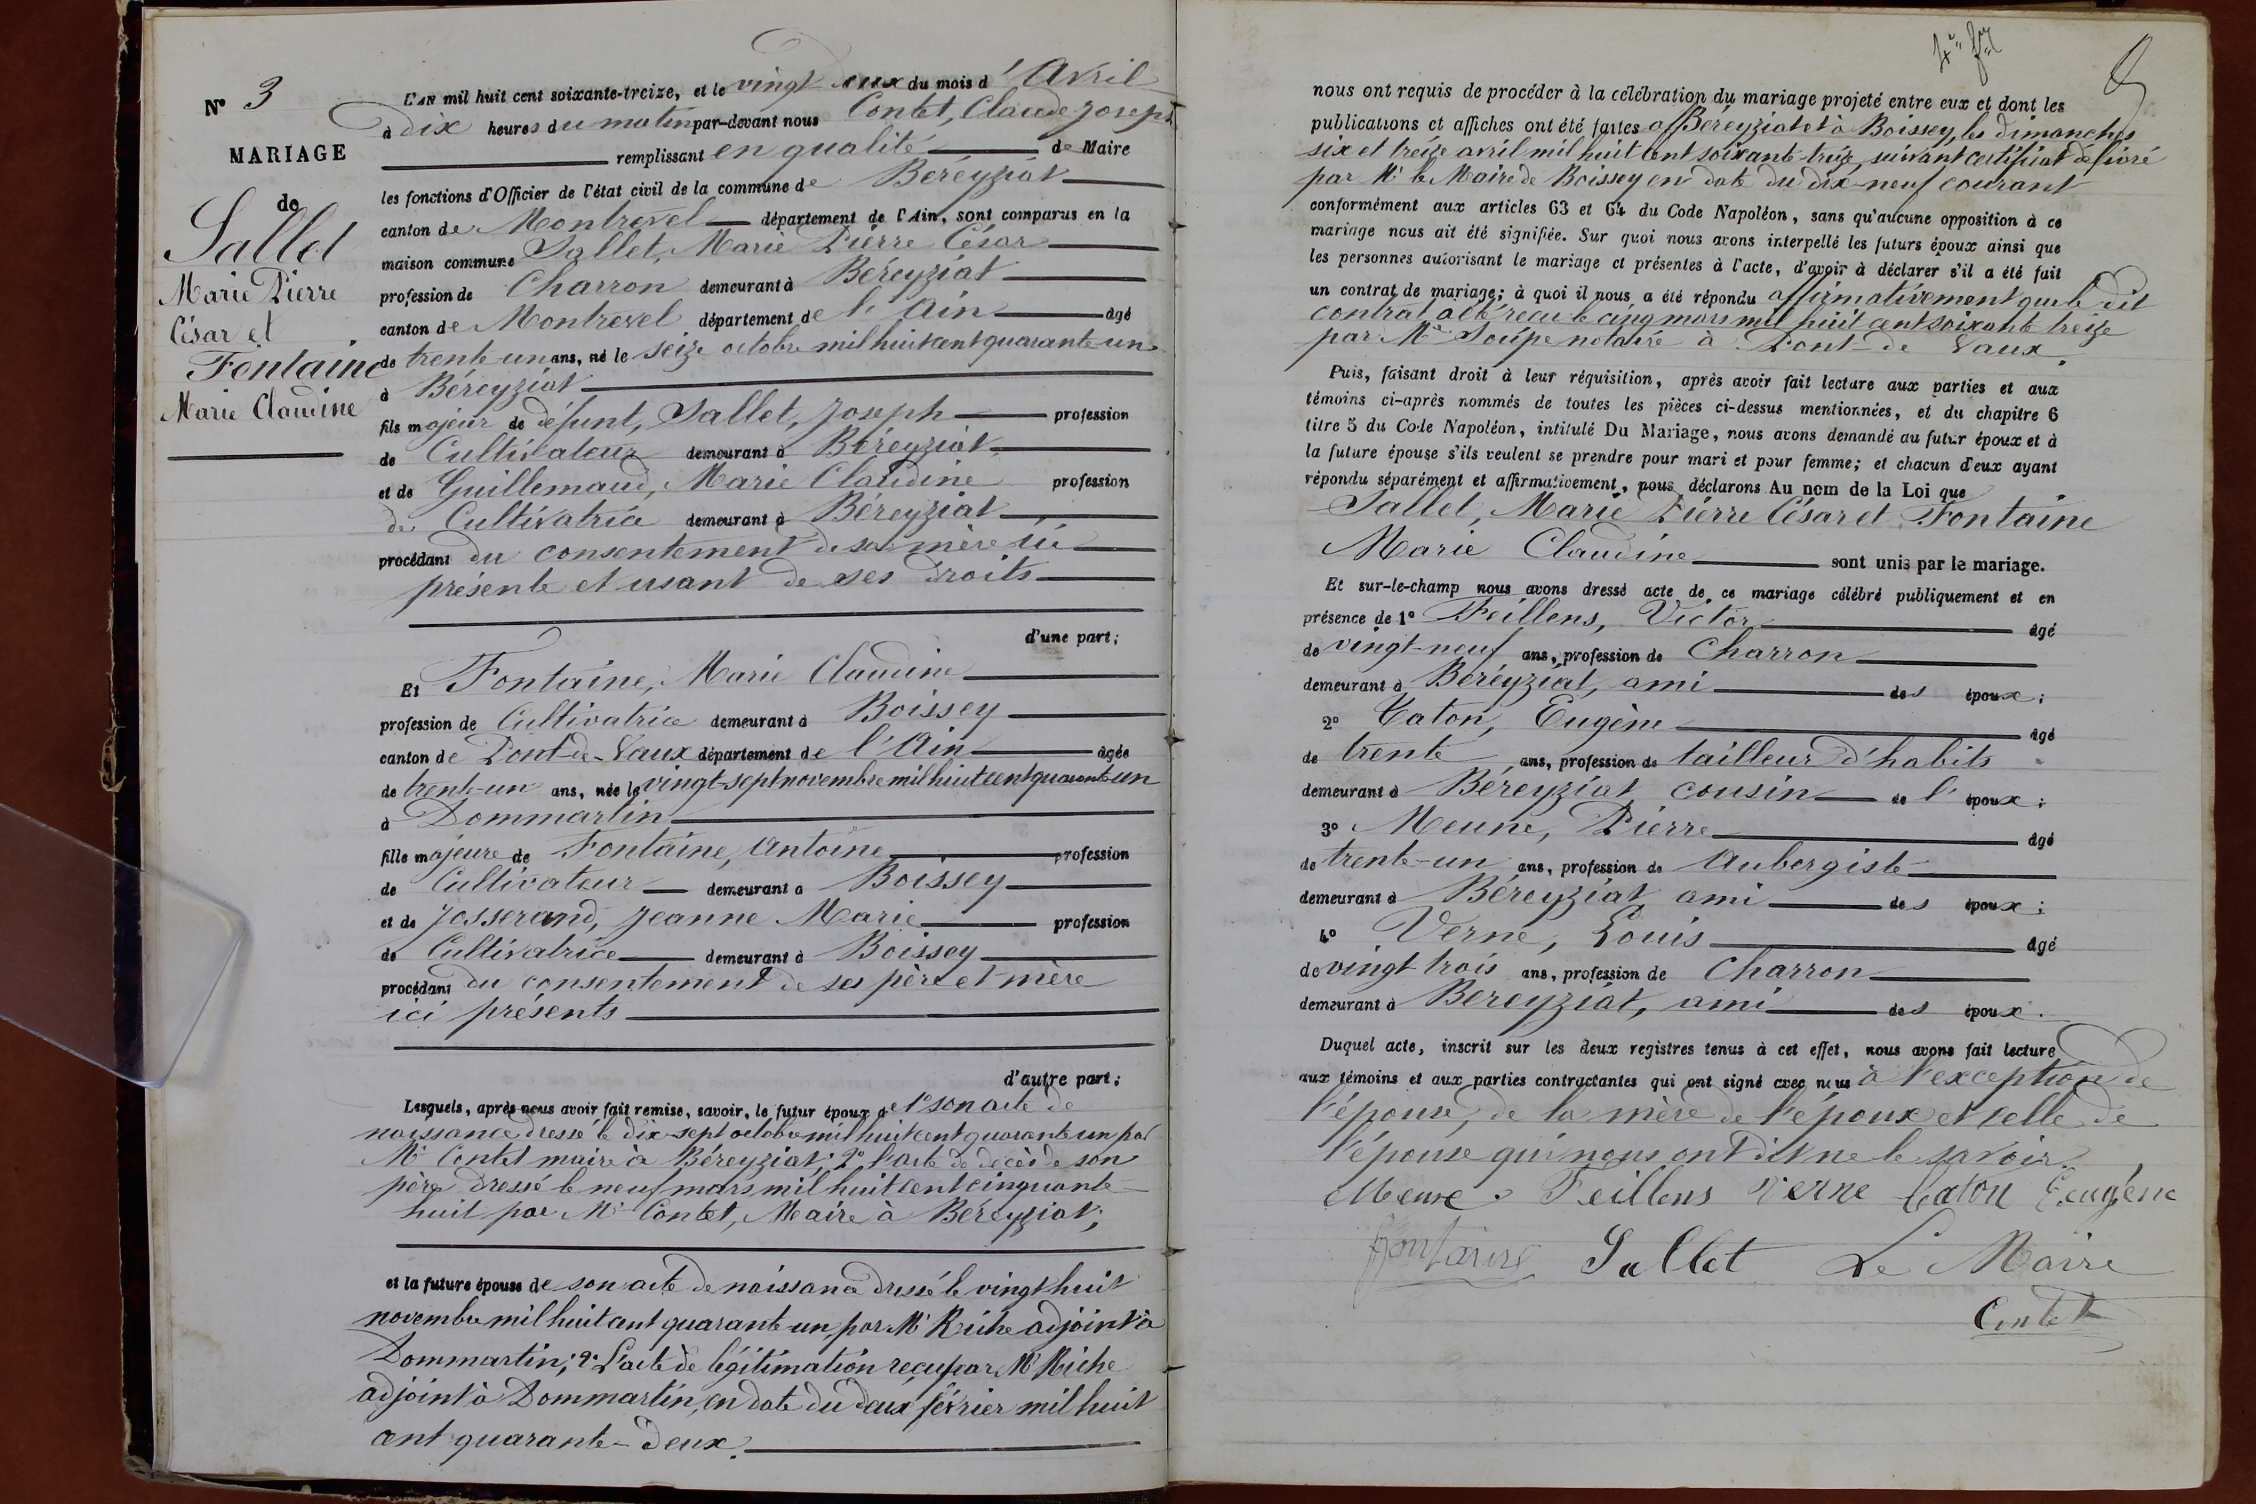 N° 3
MARIAGE
de
Sallet
Marie Pierre
César et
Fontaine
Marie Claudine
L'AN mil huit cent soixante-treize, et le vingt deux du mois d'Avril
à dix heures du matin par-devant nous Contet, Claude Joseph
remplissant en qualité de Maire
les fonctions d'Officier de l'état civil de la commune de Béréyziat
canton de Montrevel département de l'Ain, sont comparus en la
maison commune Sallet, Marie Pierre César
profession de Charron demeurant à Béreyziat
canton de Montrevel département de l'Ain agé
de trente-un ans, né le seize octobre mil huit cent quarante-un
à Béreyziat
fils majeur de défunt, Sallet, Joseph profession
de Cultivateur demeurant à Béreyziat
et de Guillemaud, Marie Claudine profession
de Cultivatrice demeurant à Béreyziat
procédant du consentement de sa mère ici
présente et usant de ses droits
d'une part;
Et Fontaine, Marie Claudine
profession de Cultivatrice demeurant à Boissey
canton de Pont-de-Vaux département de l'Ain agée
de trente-un ans, née le vingt-sept novembre mil huit cent quarante-un
à Dommartin
fille majeure de Fontaine, Antoine profession
de Cultivateur demeurant à Boissey
et de Josserand, Jeanne Marie profession
de Cultivatrice demeurant à Boissey
procédant du consentement de ses père et mère
ici présents
d'autre part;
Lesquels, après nous avoir fait remise, savoir, le futur époux de 1° son acte de
naissance dressé le dix-sept octobre mil huit cent quarante un par
Mr Contet maire à Béreyziat; 2° l'acte de décès de son
père dressé le neuf mars mil huit cent cinquante-
huit par Mr Contet, Maire à Béreyziat;
et la future épouse de son acte de naissance dressé le vingt huit
novembre mil huit cent quarante-un par Mr Riche adjoint à
Dommartin; 2° L'acte de légitimation reçu par Mr Riche
adjoint à Dommartin, en date du deux février mil huit
cent quarante-deux.
nous ont requis de procéder à la célébration du mariage projeté entre eux et dont les
publications et affiches ont été faites à Béreyziat et à Boissey, les dimanches
six et treize avril mil huit cent soixante-treize, suivant certificat délivré
par Mr le Maire de Boissey en date du dix-neuf courant
conformément aux articles 63 et 64 du Code Napoléon, sans qu'aucune opposition à ce
mariage nous ait été signifiée. Sur quoi nous avons interpellé les futurs époux ainsi que
les personnes autorisant le mariage et présentes à l'acte, d'avoir à déclarer s'il a été fait
un contrat de mariage; à quoi il nous a été répondu affirmativement que le dit
contrat a été reçu le cinq mars mil huit cent soixante treize
par Me Soupe notaire à Pont-de Vaux.
Puis, faisant droit à leur réquisition, après avoir fait lecture aux parties et aux
témoins ci-après nommés de toutes les pièces ci-dessus mentionnées, et du chapitre 6
titre 5 du Code Napoléon, intitulé Du Mariage, nous avons demandé au futur époux et à
la future épouse s'ils veulent se prendre pour mari et pour femme; et chacun d'eux ayant
répondu séparément et affirmativement, nous déclarons Au nom de la Loi que
Sallet, Marie Pierre César et Fontaine
Marie Claudine sont unis par le mariage.
Et sur-le-champ nous avons dressé acte de ce mariage célébré publiquement et en
présence de 1° Feillens, Victor agé
de vingt-neuf ans, profession de Charron
demeurant à Béréyziat, ami des époux;
2° Caton, Eugène agé
de trente ans, profession de tailleur d'habits
demeurant à Béreyziat cousin de l'époux;
3° Meune, Pierre agé
de trente-un ans, profession de Aubergiste
demeurant à Béreyziat ami des époux;
4° Verne, Louis agé
de vingt trois ans, profession de Charron
demeurant à Bereyziat, ami des époux.
Duquel acte, inscrit sur les deux registres tenus à cet effet, nous avons fait lecture
aux témoins et aux parties contractantes qui ont signé avec nous à l'exception de
l'épouse, de la mère de l'époux et celle de
l'épouse qui nous ont dit ne le savoir.
Meune Feillens Verne Caton Eugène
Fontaine Sallet Le Maire
Contet